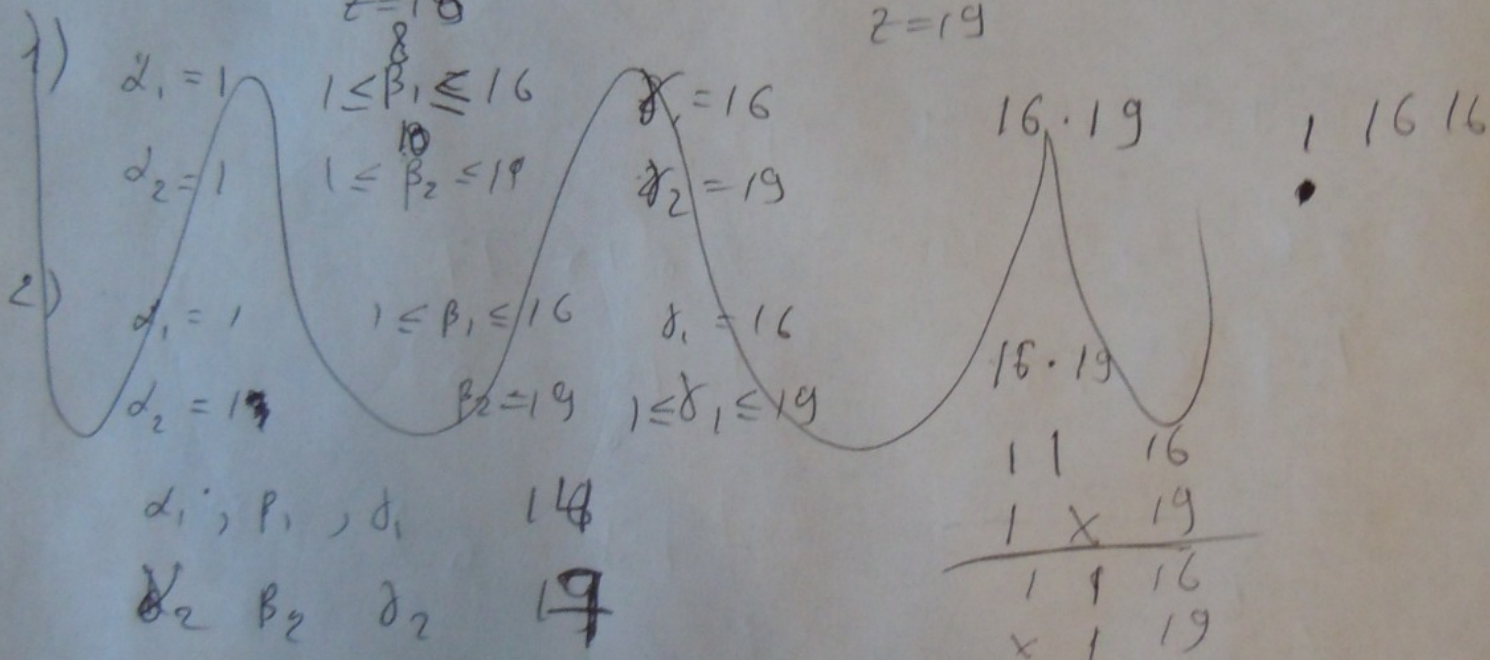 z = 19
1) α₁ = 1 1 ≤ β₁ ≤ 16 γ₁ = 16 16 · 19 1 16 16
α₂ = 1 1 ≤ β₂ ≤ 19 γ₂ = 19
2) α₁ = 1 1 ≤ β₁ ≤ 16 γ₁ = 16 16 · 19
α₂ = 1 β₂ = 19 1 ≤ γ₁ ≤ 19
1 1 16
α₁, β₁, γ₁
1 x 19
1 1 16
β₂ γ₂
x 1 19